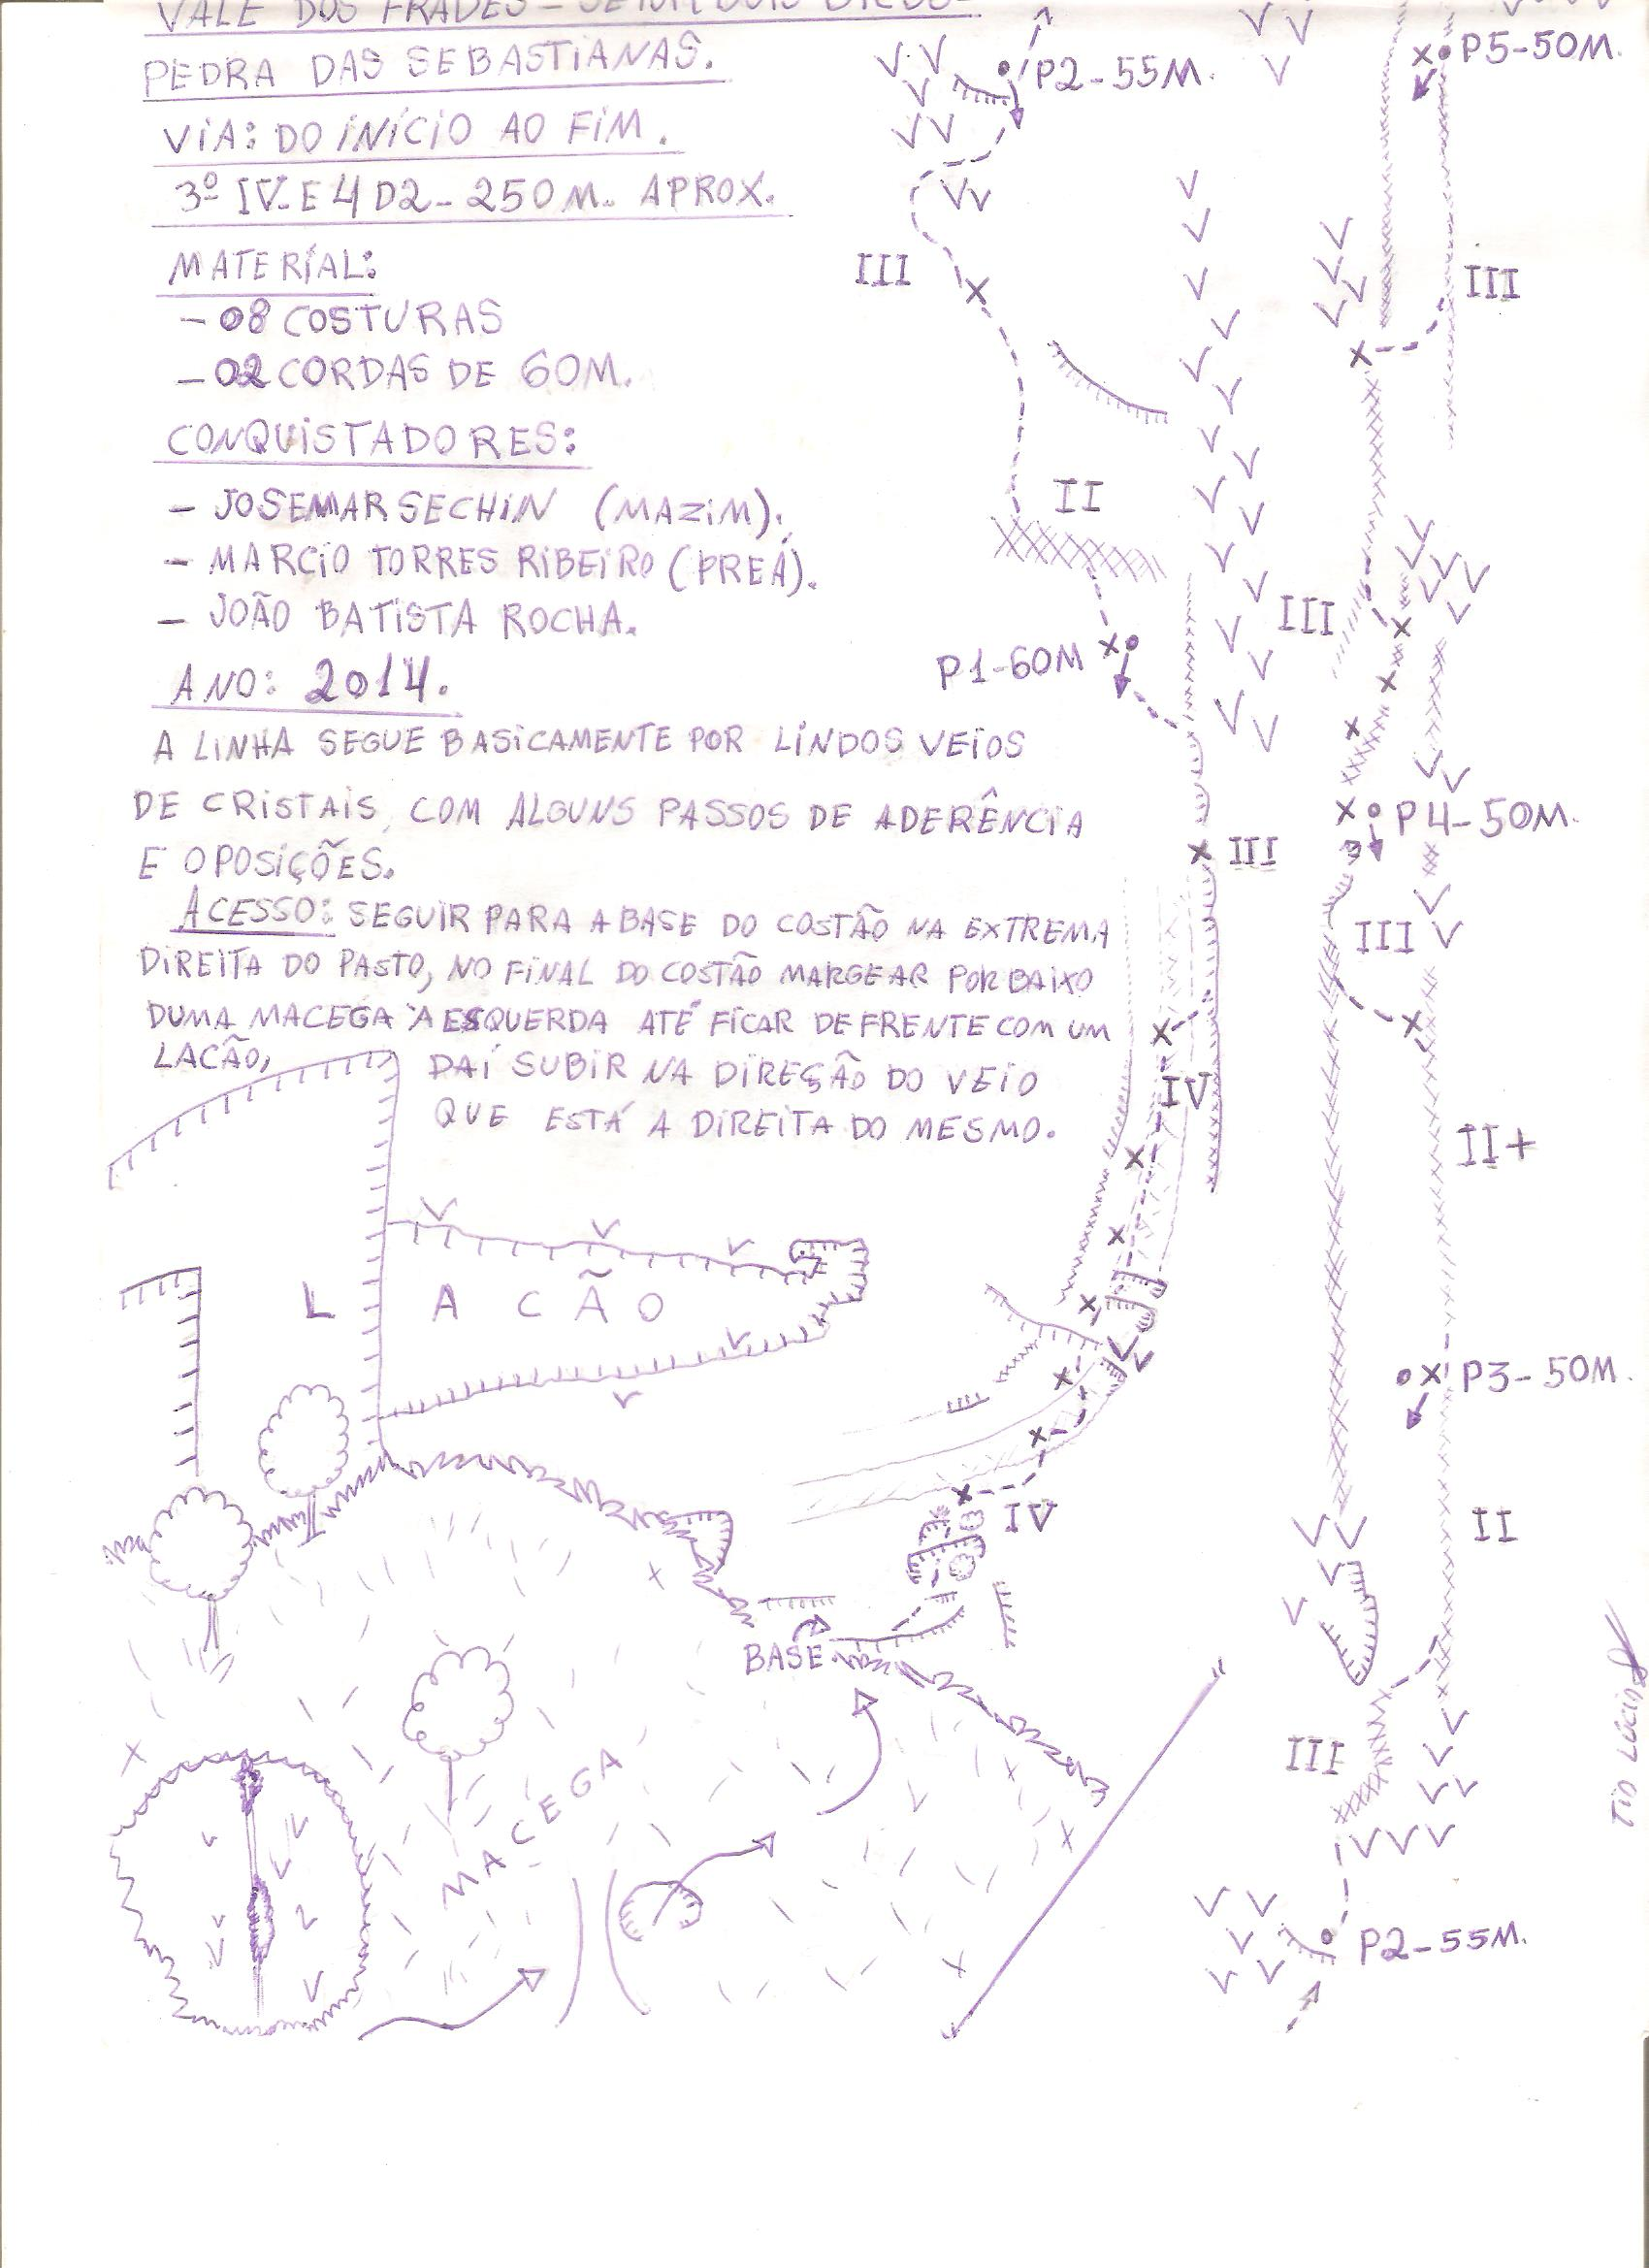 VALE DOS FRADES -
PEDRA DAS SEBASTIANAS.
VIA: DO INÍCIO AO FIM.
3º IV. E4 D2 - 250 M. APROX.
MATERIAL:
- 08 COSTURAS
- 02 CORDAS DE 60M.
CONQUISTADORES:
- JOSEMAR SECHIN (MAZIM).
- MARCIO TORRES RIBEIRO (PREÁ).
- JOÃO BATISTA ROCHA.
ANO: 2014.
A LINHA SEGUE BASICAMENTE POR LINDOS VEIOS
DE CRISTAIS, COM ALGUNS PASSOS DE ADERÊNCIA
E OPOSIÇÕES.
ACESSO: SEGUIR PARA A BASE DO COSTÃO NA EXTREMA
DIREITA DO PASTO, NO FINAL DO COSTÃO MARGEAR POR BAIXO
DUMA MACEGA À ESQUERDA ATÉ FICAR DE FRENTE COM UM
LACÃO,
DAÍ SUBIR NA DIREÇÃO DO VEIO
QUE ESTÁ A DIREITA DO MESMO.
LACÃO
BASE
MACEGA
P2-55M.
III
II
P1-60M
III
IV
IV
P5-50M.
III
III
P4-50M.
III
II+
P3-50M.
II
III
P2-55M.
Tio Lúcio